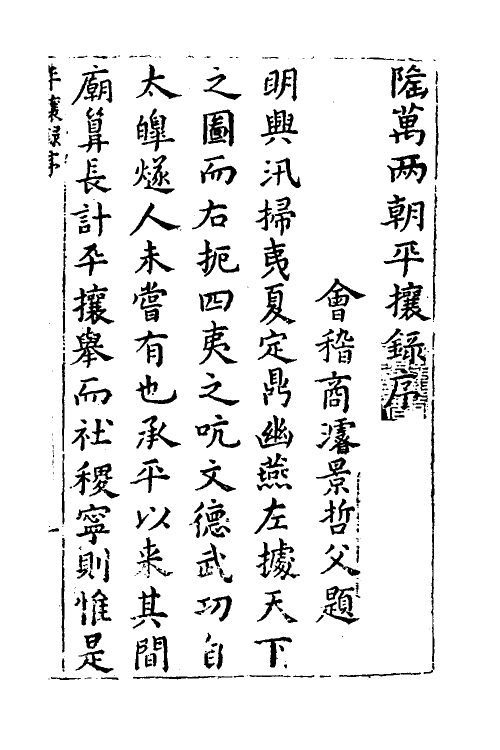 隆萬两朝平攘錄序
會稽商濬景哲父題
明興汛掃夷夏定鼎幽燕左據天下
之圖而右扼四夷之吭文德武功自
太皞燧人未嘗有也承平以来其間
廟筭長計平攘舉而社稷寧則惟是
平攘錄序
一